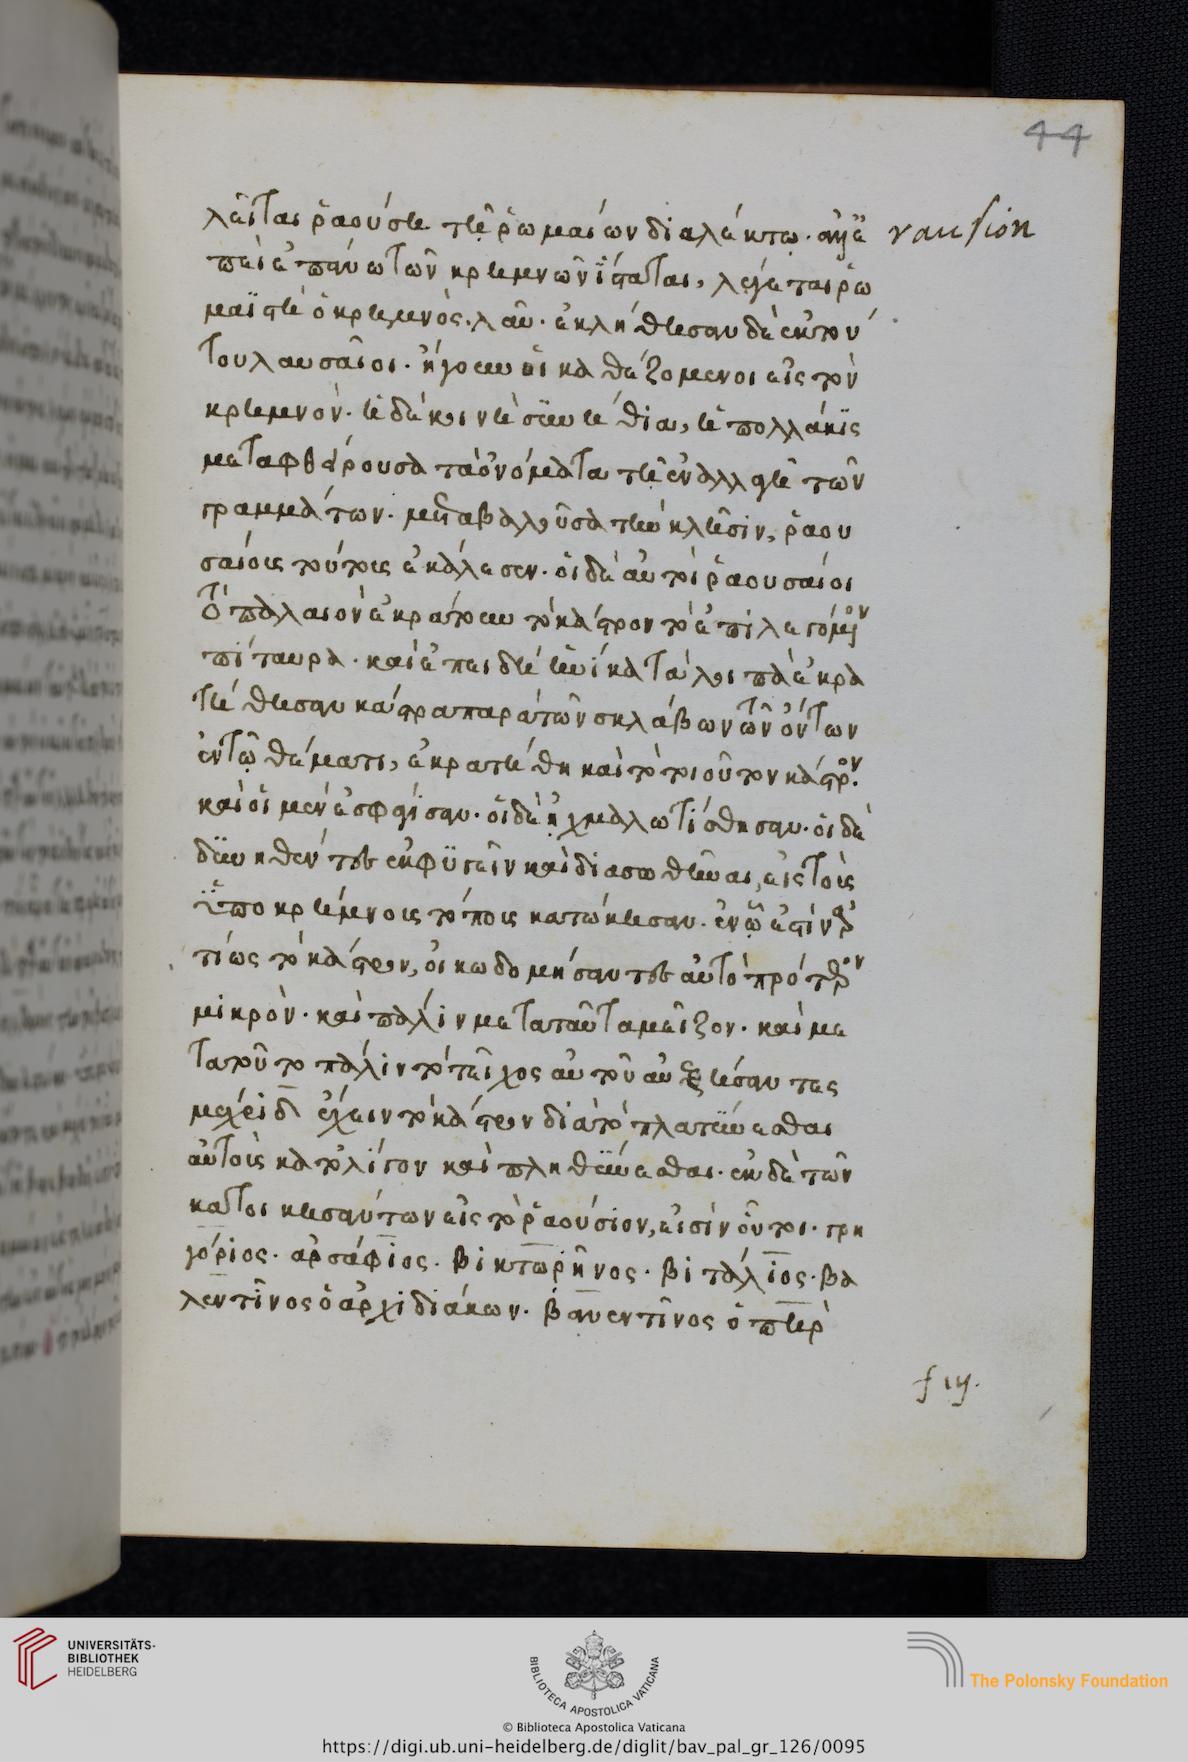 44
λεῖται ῥαούση τῇ ῥωμαίων διαλέκτω· ἀλλ' ἐ rausion
πεὶ ἐπάνω τῶν κρημνῶν ἵσταται, λέγεται ῥω
μαϊστὶ ὁ κρημνὸς λαῦ· ἐκλήθησαν δὲ ἐκ τού
του λαυσαῖοι· ἤγουν οἱ καθεζόμενοι εἰς τὸν
κρημνόν· ἡ δὲ κοινὴ συνήθεια, ἡ πολλάκις
μεταφθείρουσα τὰ ὀνόματα τῇ ἐναλλαγῇ τῶν
γραμμάτων· μεταβαλοῦσα τὴν κλῆσιν, ῥαου
σαίους τούτους ἐκάλεσεν· οἱ δὲ αὐτοὶ ῥαουσαίοι
τὸ παλαιὸν ἐκράτουν τὸ κάστρον τὸ ἐπιλεγόμενον
πίταυρα· καὶ ἐπειδὴ ἡνίκα τὰ λοιπὰ ἐκρα
τήθησαν κάστρα παρὰ τῶν σκλάβων τῶν ὄντων
ἐν τῶ θέματι, ἐκρατήθη καὶ τὸ τοιοῦτον κάστρον·
καὶ οἱ μὲν ἐσφάγησαν· οἱ δὲ ἠχμαλωτίσθησαν· οἱ δὲ
δυνηθέντες ἐκφυγεῖν καὶ διασωθῆναι, εἰς τοὺς
ὑποκρήμνους τόπους κατώκησαν· ἐν ῶ ἐστὶν ἀρ
τίως τὸ κάστρον, οἰκοδομήσαντες αὐτὸ πρότερον
μικρὸν· καὶ πάλιν μετὰ ταῦτα μεῖζον· καὶ με
τὰ τοῦτο πάλιν τὸ τεῖχος αὐτοῦ αὐξήσαντες
μέχρι δ ἔχειν τὸ κάστρον διὰ τὸ πλατύνεσθαι
αὐτοὺς κατ' ὀλίγον καὶ πληθύνεσθαι· ἐκ δὲ τῶν
κατοικησάντων εἰς τὸ ῥαούσιον, εἰσὶν οὗτοι· γρη
γόριος· ἀρσάφιος· βικτωρῖνος· βιτάλιος· βα
λεντῖνος ὁ ἀρχιδιάκων· βαλεντῖνος ὁ πατὴρ
UNIVERSITÄTS-
BIBLIOTHEK
HEIDELBERG
BIBLIOTECA APOSTOLICA VATICANA
The Polonsky Foundation
© Biblioteca Apostolica Vaticana
https://digi.ub.uni-heidelberg.de/diglit/bav_pal_gr_126/0095